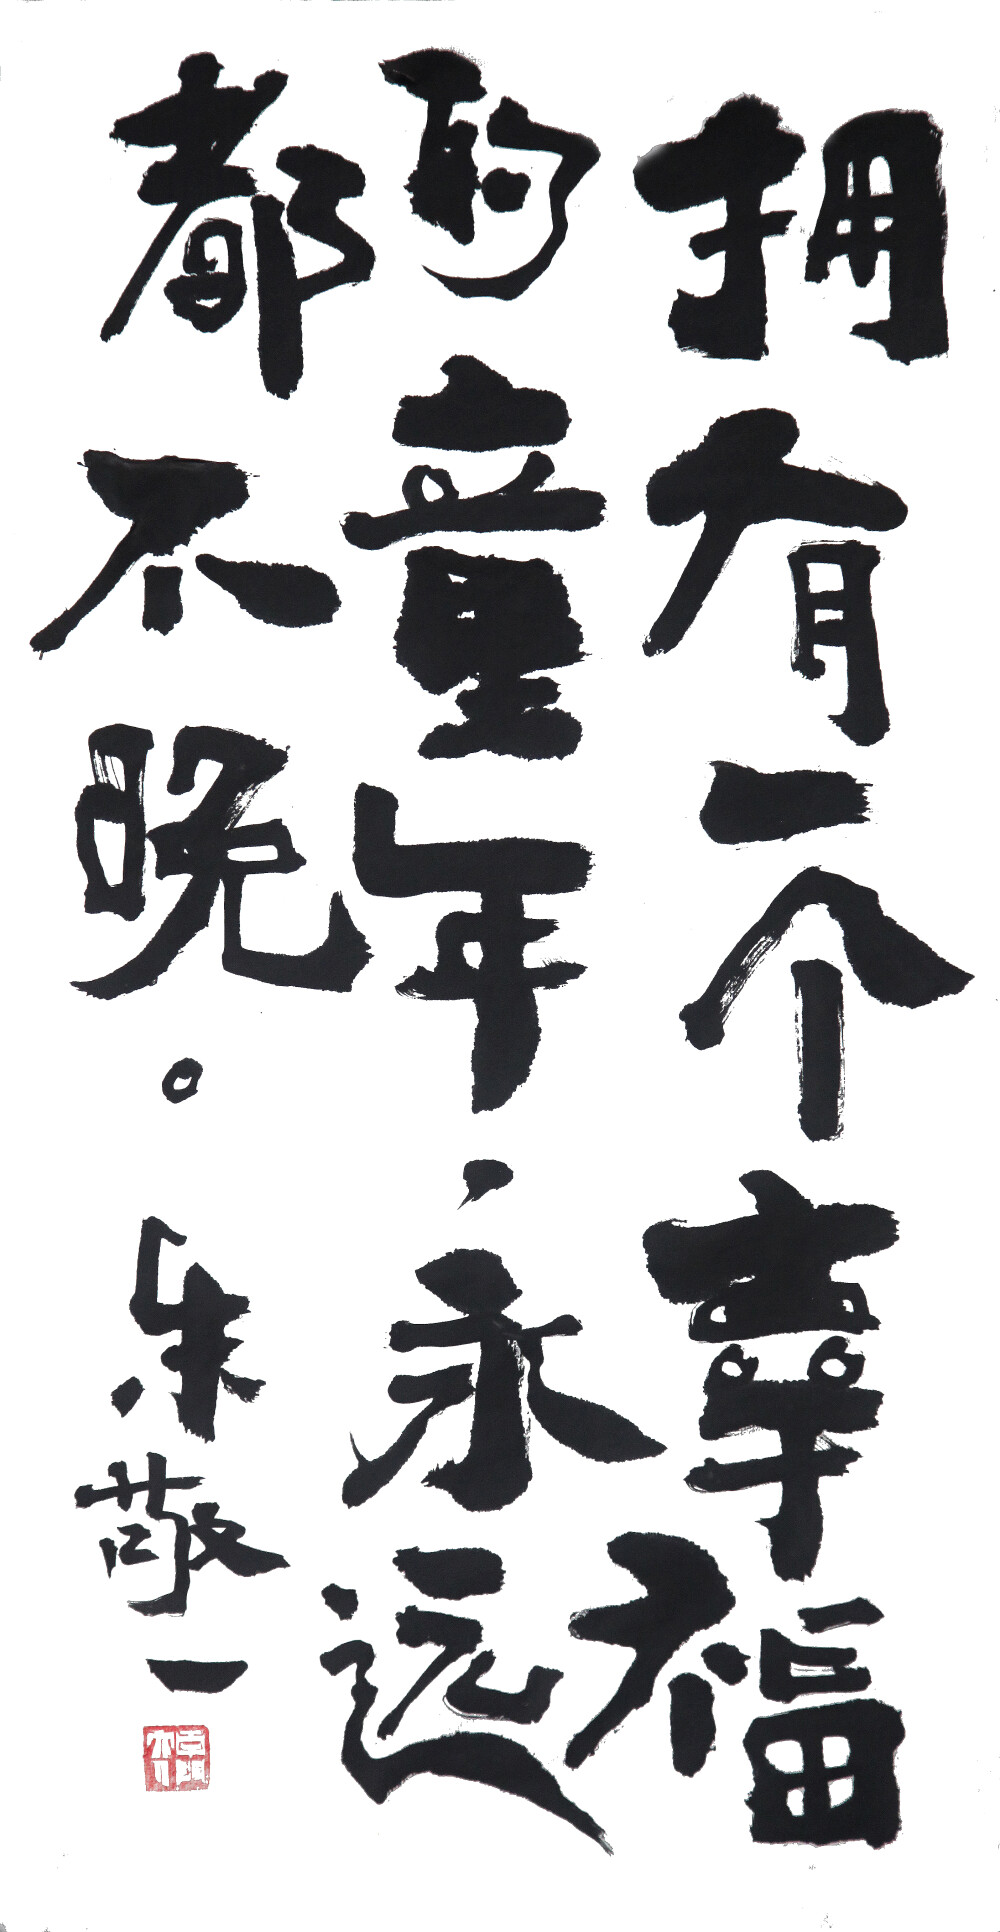 拥有一个幸福
的童年，永远
都不晚。朱敬一